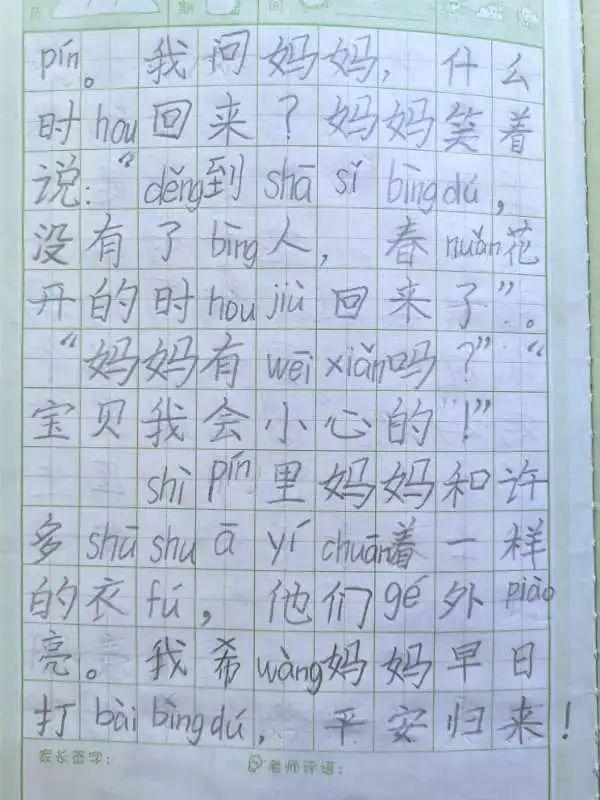 期
pín。我问妈妈，什么
时hòu回来？妈妈笑着
说：“děng到shā sǐ bìngdú，
没有了bìng人，春nuǎn花
开的时hòu jiù回来了”。
“妈妈有wēi xiǎn吗？”“
宝贝我会小心的！”
shì pín里妈妈和许
多shū shu ā yí chuān着一样
的衣fú，他们gé外piào
亮。我希wàng妈妈早日
打bài bìngdú，平安归来！
家长签字： 老师评语：